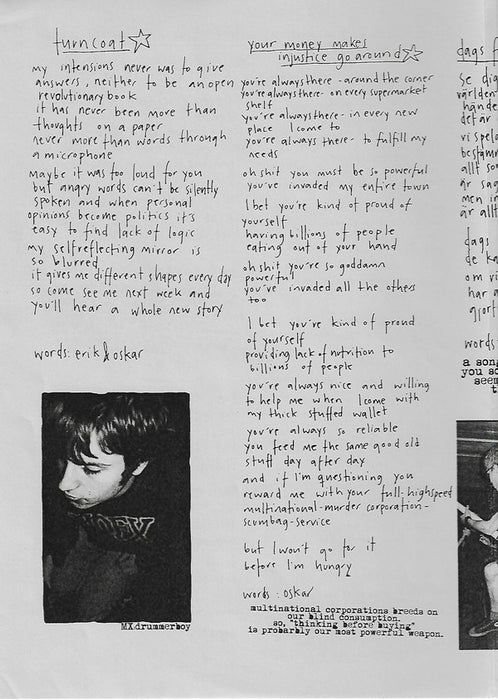 turncoat
my intensions never was to give
answers, neither to be an open
revolutionary book
it has never been more than
thoughts on a paper
never more than words through
a microphone
maybe it was too loud for you
but angry words can't be silently
spoken and when personal
opinions become politics it's
easy to find lack of logic
my selfreflecting mirror is
so blurred
it gives me different shapes every day
so come see me next week and
you'll hear a whole new story
words: erik & oskar
MX.drummerboy
your money makes
injustice go around
you're always there - around the corner
you're always there - on every supermarket
shelf
you're always there - in every new
place I come to
you're always there - to fulfill my
needs
oh shit you must be so powerful
you've invaded my entire town
I bet you're kind of proud of
yourself
having billions of people
eating out of your hand
oh shit you're so goddamn
powerful
you've invaded all the others
too
I bet you're kind of proud
of yourself
providing lack of nutrition to
billions of people
you're always nice and willing
to help me when I come with
my thick stuffed wallet
you're always so reliable
you feed me the same good old
stuff day after day
and if I'm questioning you
reward me with your full-highspeed
multinational-murder corporation-
scumbag-service
but I won't go for it
before I'm hungry
words: oskar
multinational corporations breeds on
our blind consumption.
so, "thinking before buying"
is probably our most powerful weapon.
dags f
se dig
världen
hände
det är
vi spelo
bestäm
allt so
är sag
men in
är allt
dags
de ka
om vi
har a
gjort
words
a song
you so
seem
t